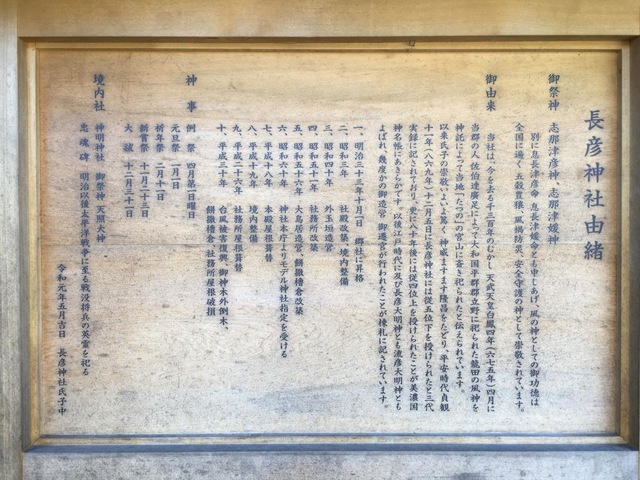 長彦神社由緒
御祭神　志那津彦神　志那津媛神
別に息長津彦命、息長津媛命とも申しあげ、風の神としての御功徳は
全国に遍く、五穀豊穣、悪病防禦、安全守護の神として崇敬されています。
御由来
当社は、今を去る千三百年のむかし、天武天皇白鳳四年（六七五年）四月に
当郡の人佐伯連廣足によって大和国平群郡立野に祀られた龍田の風神を
神託によって当地「たつの」の宮山に斎き祀られたと伝えられています。
以来氏子の崇敬いよいよ篤く、神威ますます隆昌をたどり、平安時代貞観
十一年（八六九年）十二月五日に長彦神社には従五位下を授けられたと三代
実録に記されており、更に八十年後には従四位上を授けられたことが美濃国
神名帳にあきらかです。以後江戸時代に及び長彦大明神とも流彦大明神とも
よばれ、幾度かの御造営、御遷宮が行われたことが棟札に記されています。
一、明治三十三年十月一日　郷社に昇格
二、昭和三年　社殿改築、境内整備
三、昭和四十年　外玉垣造営
四、昭和五十一年　社務所改築
五、昭和五十六年　大鳥居造営、餅撒櫓倉改築
六、昭和六十年　神社本庁よりモデル神社指定を受ける
七、平成十八年　本殿屋根葺替
八、平成十九年　境内整備
九、平成二十六年　社務所屋根葺替
十、平成三十年　台風被害復興、御神木外倒木、
餅撒櫓倉、社務所屋根破損
神事
例祭　四月第一日曜日
元旦祭　一月一日
祈年祭　二月十一日
新嘗祭　十一月二十三日
大祓　十二月三十一日
境内社
神明神社　御祭神　天照大神
忠魂碑　明治以後太平洋戦争に至る戦没将兵の英霊を祀る
令和元年五月吉日　長彦神社氏子中